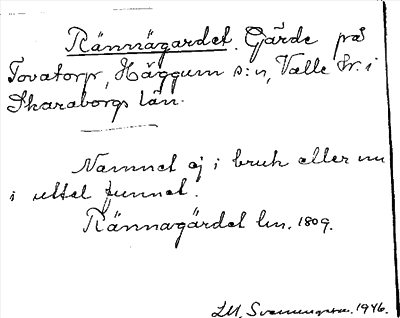 Rännägardet. Gärde på
Tovatorp, Häggum s:n, Valle hr. i
Skaraborgs län.
Namnet ej i bruk eller nu
i uttal funnet.
Rännagärdet lm. 1809.
1946.